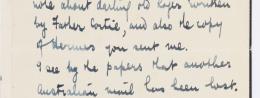 note about darling old Loyes written
by Father Cortie, and also the copy
of thermes you sent me.
I see by the papers that another
Australian mail has been lost.